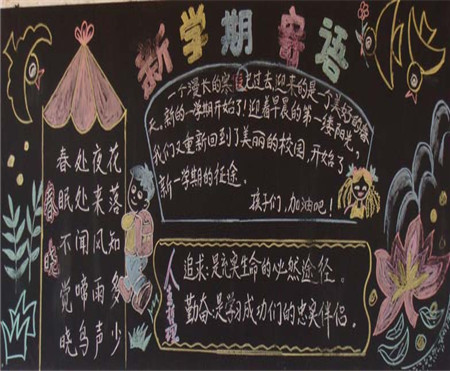 新学期寄语
春晓
春眠不觉晓
处处闻啼鸟
夜来风雨声
花落知多少
一个漫长的寒 过去,迎来的是一个美好的春
天。新的一学期开始了!迎着早晨的第一缕阳光,
我们又重新回到了美丽的校园,开始了
新一学期的征途。
孩子们,加油吧!
人生
追求:是充实生命的必然途径。
勤奋:是学习成功们的忠实伴侣。